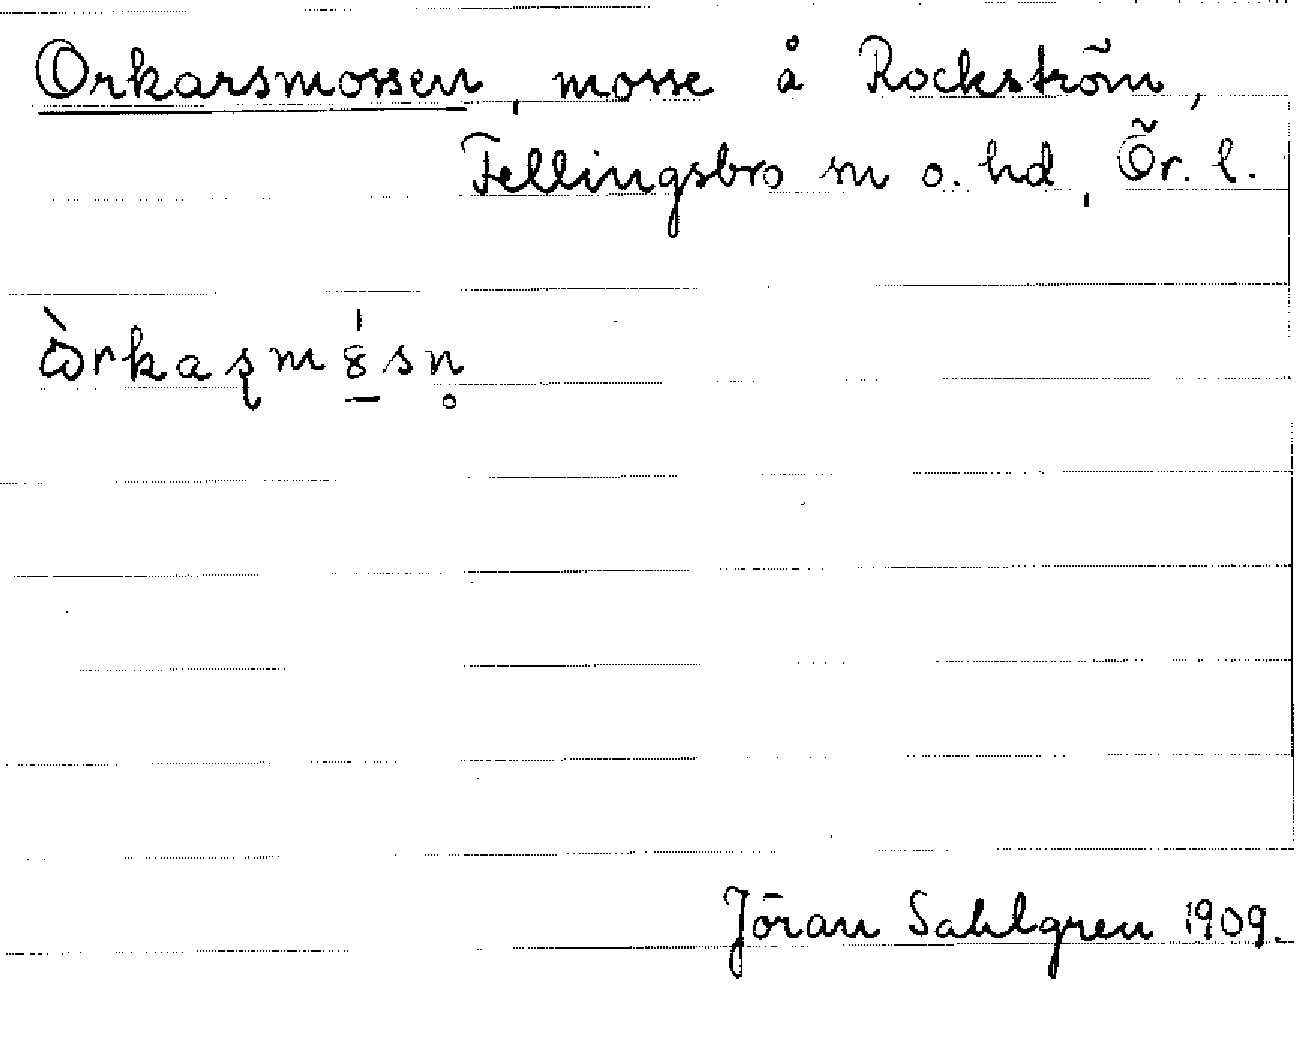 Orkarsmossen, mosse å Rockström,
Fellingsbro sn o. hd, Ör. l.
ὼrkaʂm8́sn̥
Jöran Sahlgren 1909.